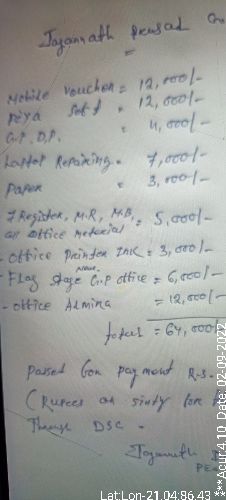 Jagannath Prasad
Mobile Voucher = 12,000/-
Piya Set = 12,000/-
G.P. D.P. = 4,000/-
Laptop Repairing = 7,000/-
Paper = 3,000/-
7 Register, M.R, M.B, = 5,000/-
an office material
- office Printer INK = 3,000/-
- Flag Stage Near G.P office = 6,000/-
- office Almira = 12,000/-
total = 64,000/-
Passed for payment R.S.
(Rupees on sixty four
Through DSC.
Jagannath
Lat Lon-21.04,86.43
***Acur:4.10 Date: 02-09-2022